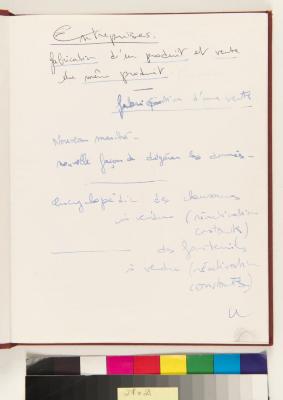 Entreprises.
fabrication d'un produit et vente
du même produit
fabrication d'une vente
Nouveau marché.
nouvelle façon de digérer les données.
encyclopédie des chansons
à vendre (réactivation
constante)
des
à vendre (réactivation
constante)